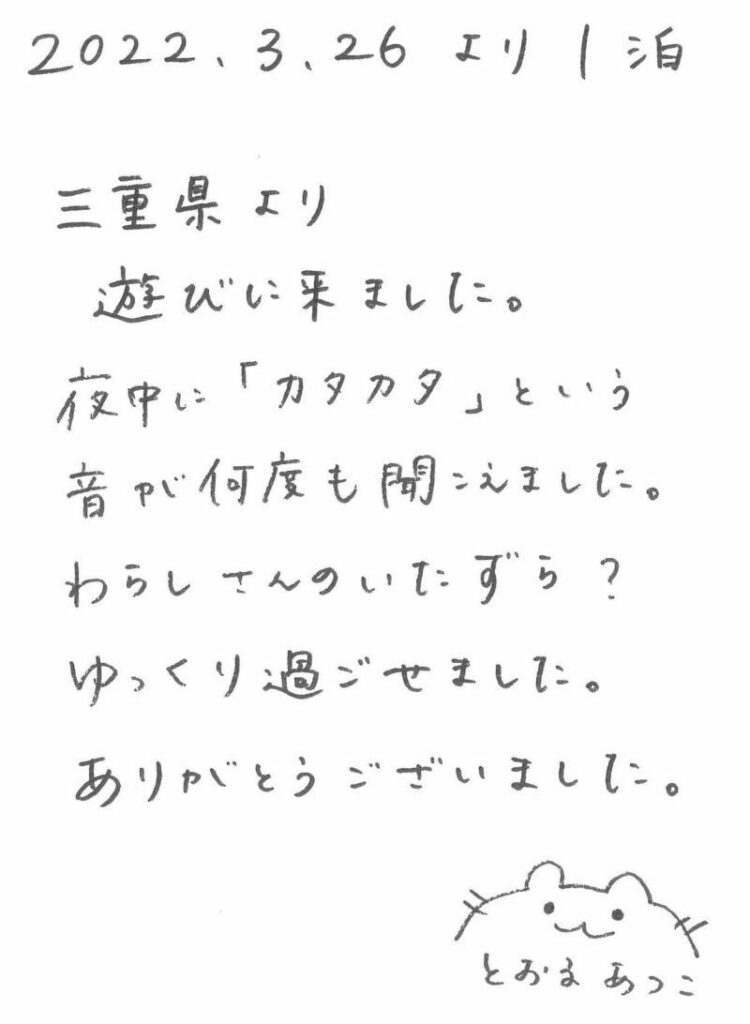 2022.3.26 より 1泊
三重県より
遊びに来ました。
夜中に「カタカタ」という
音が何度も聞こえました。
わらしさんのいたずら?
ゆっくり過ごせました。
ありがとうございました。
とおる あつこ